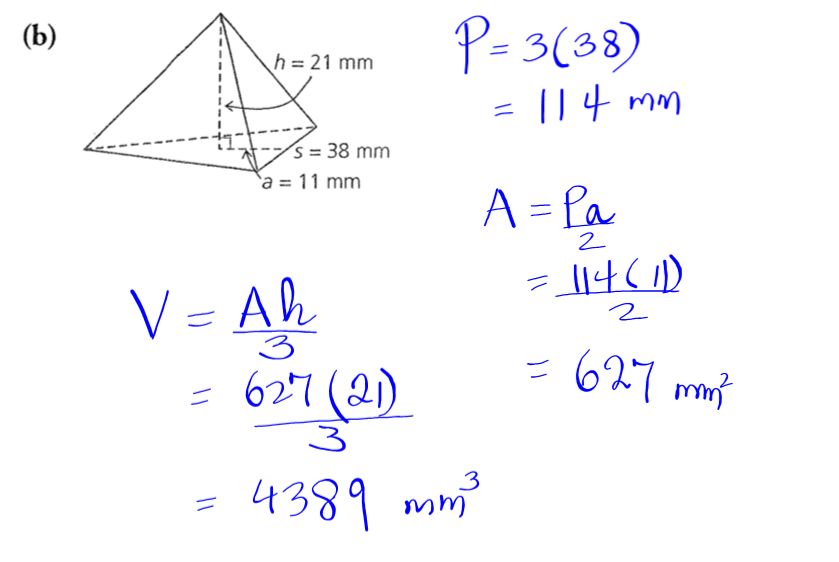 (b)
h = 21 mm
s = 38 mm
a = 11 mm
P = 3(38)
= 114 mm
A = Pa
2
= 114(11)
2
= 627 mm²
V = Ah
3
= 627(21)
3
= 4389 mm³